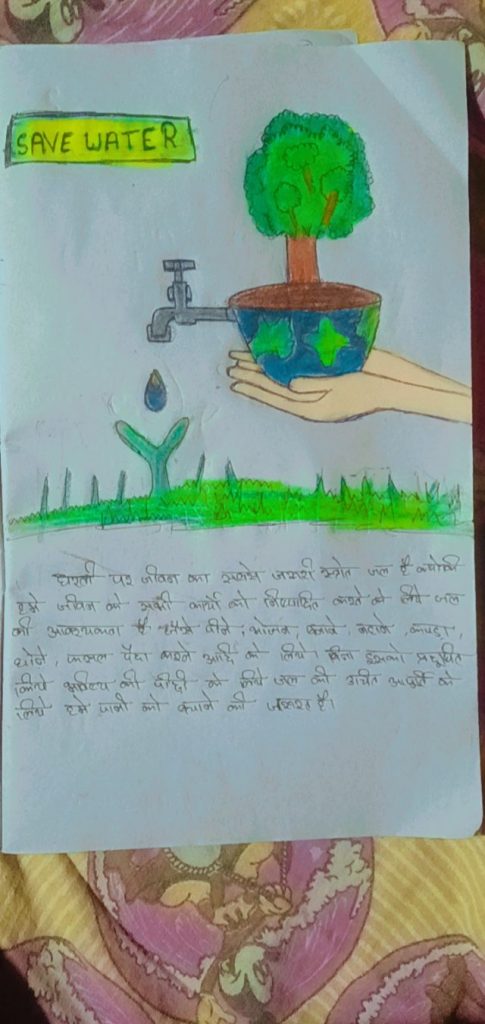 SAVE WATER
धरती पर जीवन का सबसे जरूरी स्रोत जल है क्योंकि
हमे जीवन के सभी कार्यो को निष्पादित करने के लिये जल
की आवश्यकता है जैसे पीने, भोजन, बनाने, नहाने, कपड़ा,
धोने, फसल पैदा करने आदि के लिये। बिना इसको प्रदुषित
किये भविष्य की पीढ़ी के लिये जल की उचित आपूर्ति के
लिये हमे पानी को बचाने की जरूरत है।